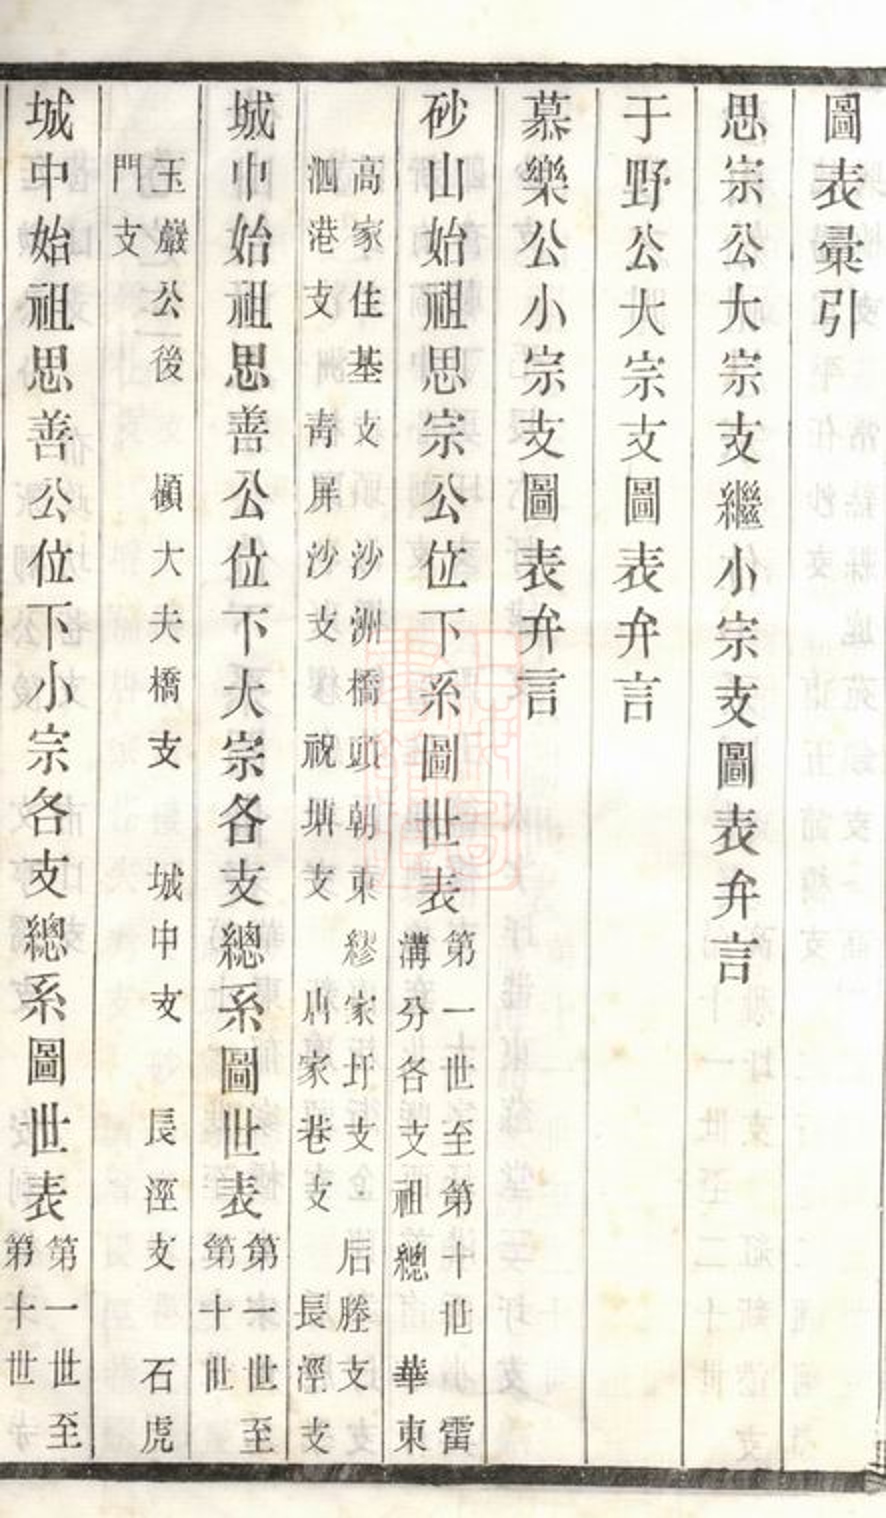 圖表彙引
思宗公大宗支繼小宗支圖表弁言
于野公大宗支圖表弁言
慕樂公小宗支圖表弁言
砂山始祖思宗公位下系圖世表
第一世至第十世 雷
溝分各支祖總 華東
高家住基支 沙洲橋頭朝東繆家圩支 后塍支
泗港支 青屏沙支 祝塘支 唐家巷支 長涇支
城中始祖思善公位下大宗各支總系圖世表
第一世至
第十世
玉巖公後 顧大夫橋支 城中支 長涇支 石虎
門支
城中始祖思善公位下小宗各支總系圖世表
第一世至
第十世